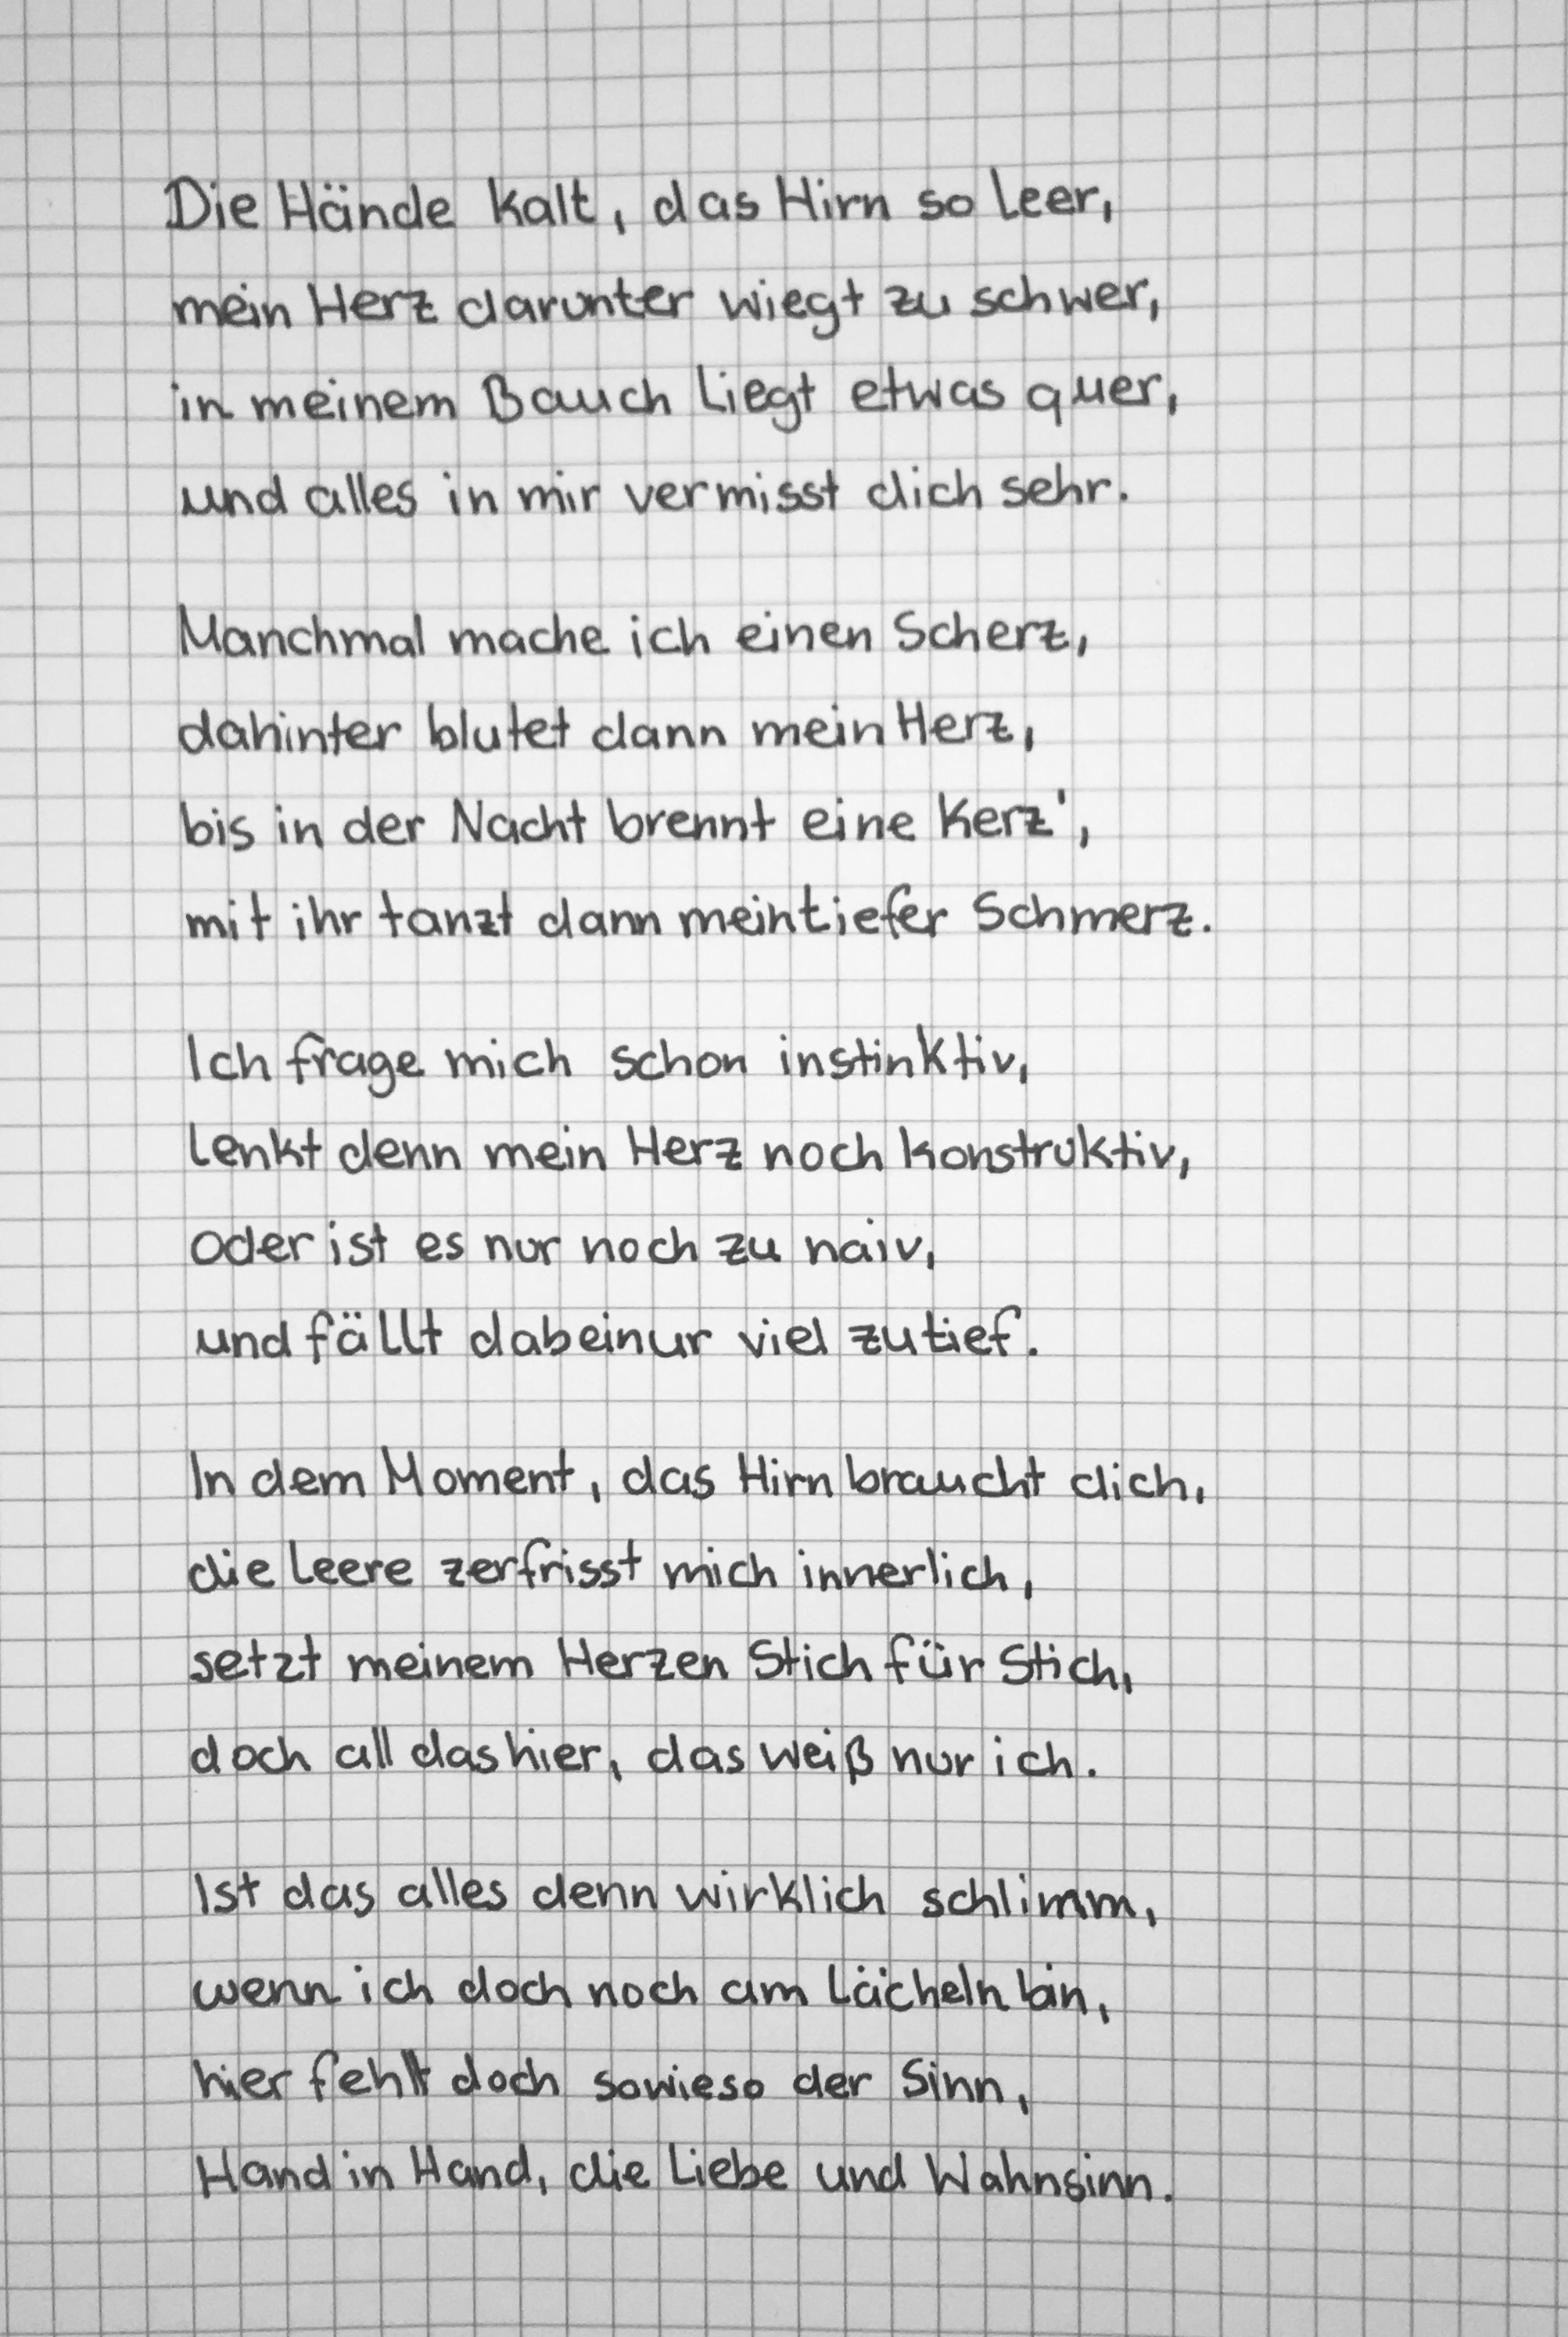 Die Hände kalt, das Hirn so leer,
mein Herz darunter wiegt zu schwer,
in meinem Bauch liegt etwas quer,
und alles in mir vermisst dich sehr.
Manchmal mache ich einen Scherz,
dahinter blutet dann mein Herz,
bis in der Nacht brennt eine Kerz',
mit ihr tanzt dann mein tiefer Schmerz.
Ich frage mich schon instinktiv,
lenkt denn mein Herz noch konstruktiv,
oder ist es nur noch zu naiv,
und fällt dabei nur viel zu tief.
In dem Moment, das Hirn braucht dich,
die Leere zerfrisst mich innerlich,
setzt meinem Herzen Stich für Stich,
doch all das hier, das weiß nur ich.
Ist das alles denn wirklich schlimm,
wenn ich doch noch am Lächeln bin,
hier fehlt doch sowieso der Sinn,
Hand in Hand, die Liebe und Wahnsinn.